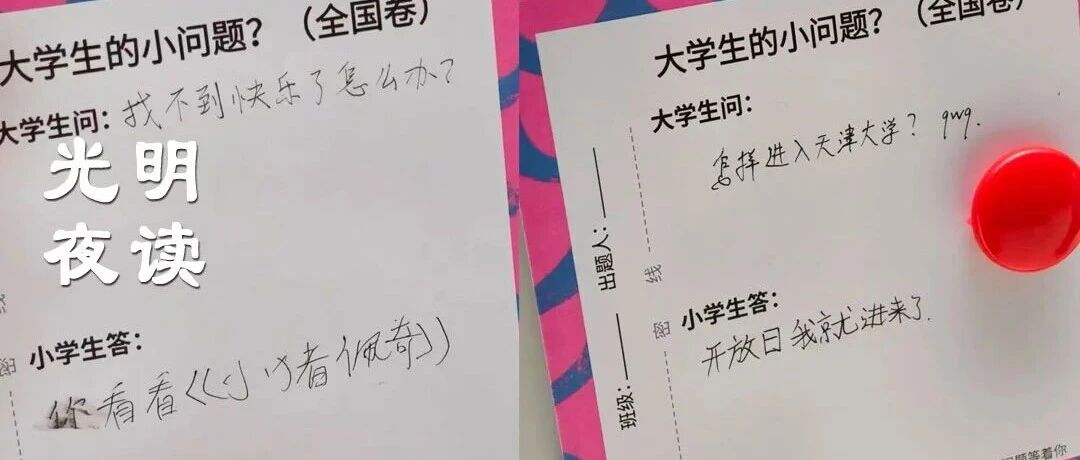 大学生的小问题？（全国卷）
大学生问：找不到快乐了怎么办？
光明
夜读
小学生答：
你看看《小猪佩奇》
大学生的小问题？（全国卷）
大学生问：
怎样进入天津大学？qwq.
出题人：
线
密
小学生答：
开放日我就进来了.
班级：
题等着你